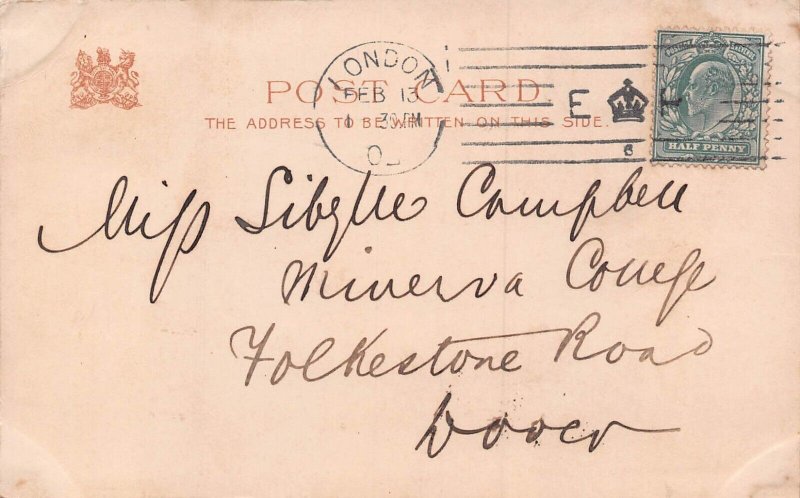 LONDON
FEB 13
POST CARD.
E
THE ADDRESS TO BE WRITTEN ON THIS SIDE.
6
HALF PENNY
Miss Sibylle Campbell
Minerva College
Folkestone Road
Dover